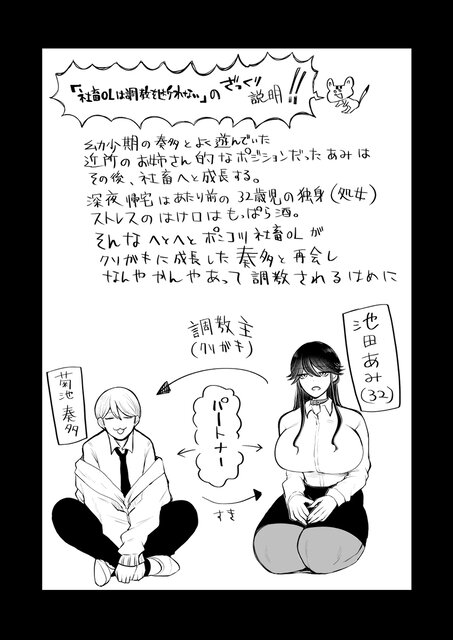 「社畜OLは調教 」の ざっくり説明!!
幼少期の奏多とよく遊んでいた
近所のお姉さん的なポジションだったあみは
その後、社畜へと成長する。
深夜帰宅はあたり前の32歳児の独身(処女)
ストレスのはけ口はもっぱら酒。
そんなへとへとポンコツ社畜OLが
クソガキに成長した奏多と再会し
なんやかんやあって調教されるはめに
調教主
(クソガキ)
池田あみ(32)
菊池奏多
パートナー
すき